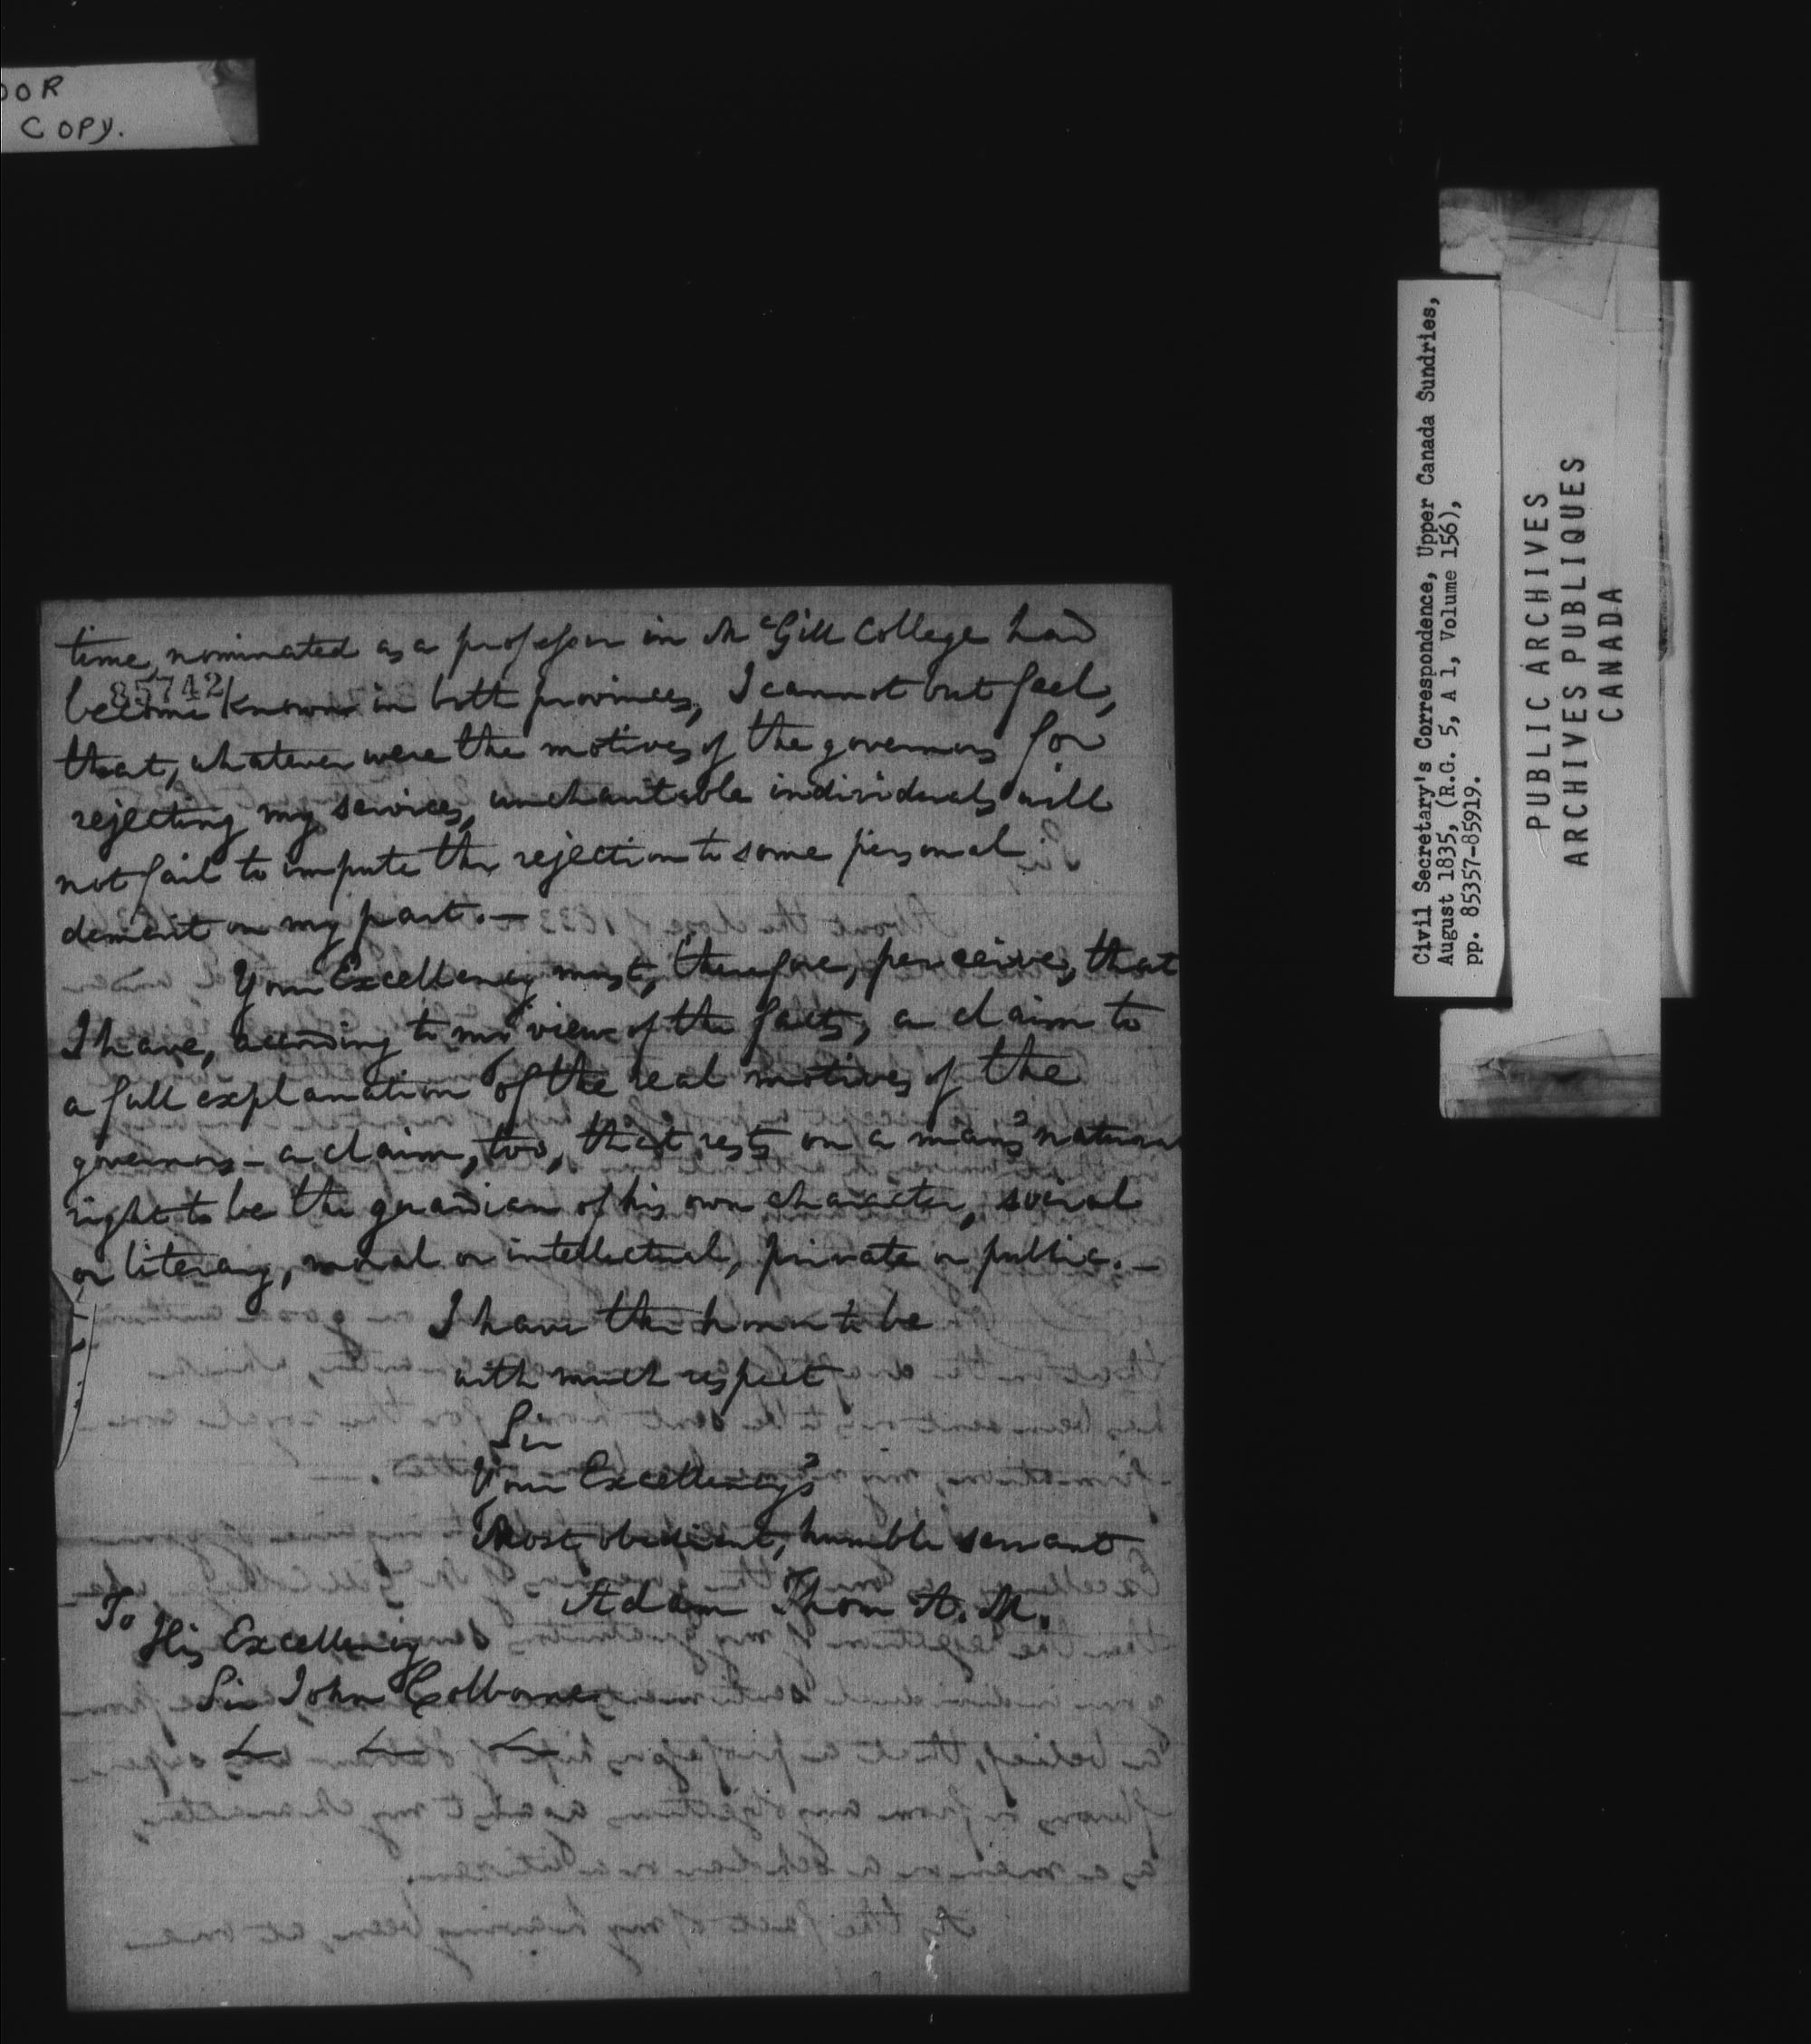 OOR
COPY.
time, nominated as a professor in McGill College had
85742
become known in both provinces, I cannot but feel,
that, whatever were the motives of the governors for
rejecting my services, uncharitable individuals will
not fail to impute the rejection to some personal
demerit on my part. —
Your Excellency must, therefore, perceive, that
I have, according to my view of the facts, a claim to
a full explanation of the real motives of the
governors – a claim, too, that rests on a man's natural
right to be the guardian of his own character, social
or literary, moral or intellectual, private or public. —
I have the honor to be
with much respect
Sir
Your Excellency's
Most obedient, humble servant
Adam Thom A. M.
To
His Excellency
Sir John Colborne
Civil Secretary's Correspondence, Upper Canada Sundries,
August 1835, (R.G. 5, A 1, Volume 156),
pp. 85357-85919.
PUBLIC ARCHIVES
ARCHIVES PUBLIQUES
CANADA